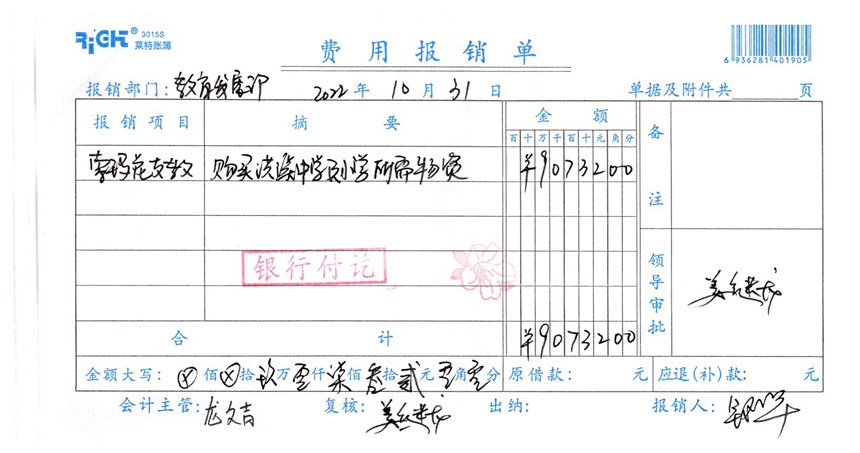 RiGHT ® 3015S
莱特账簿
费用报销单
6 936281 401905
报销部门: 教育发展部 2022 年 10 月 31 日 单据及附件共 页
报销项目 摘要 金额 备注
百十万千百十元角分
支教 购买 中学 小学所需物资 ¥9073200
银行付讫
领导审批
合计 ¥9073200
金额大写: ⊗佰⊗拾玖万零仟柒佰叁拾贰元零角零分 原借款: 元 应退(补)款: 元
会计主管: 龙文吉 复核: 出纳: 报销人: